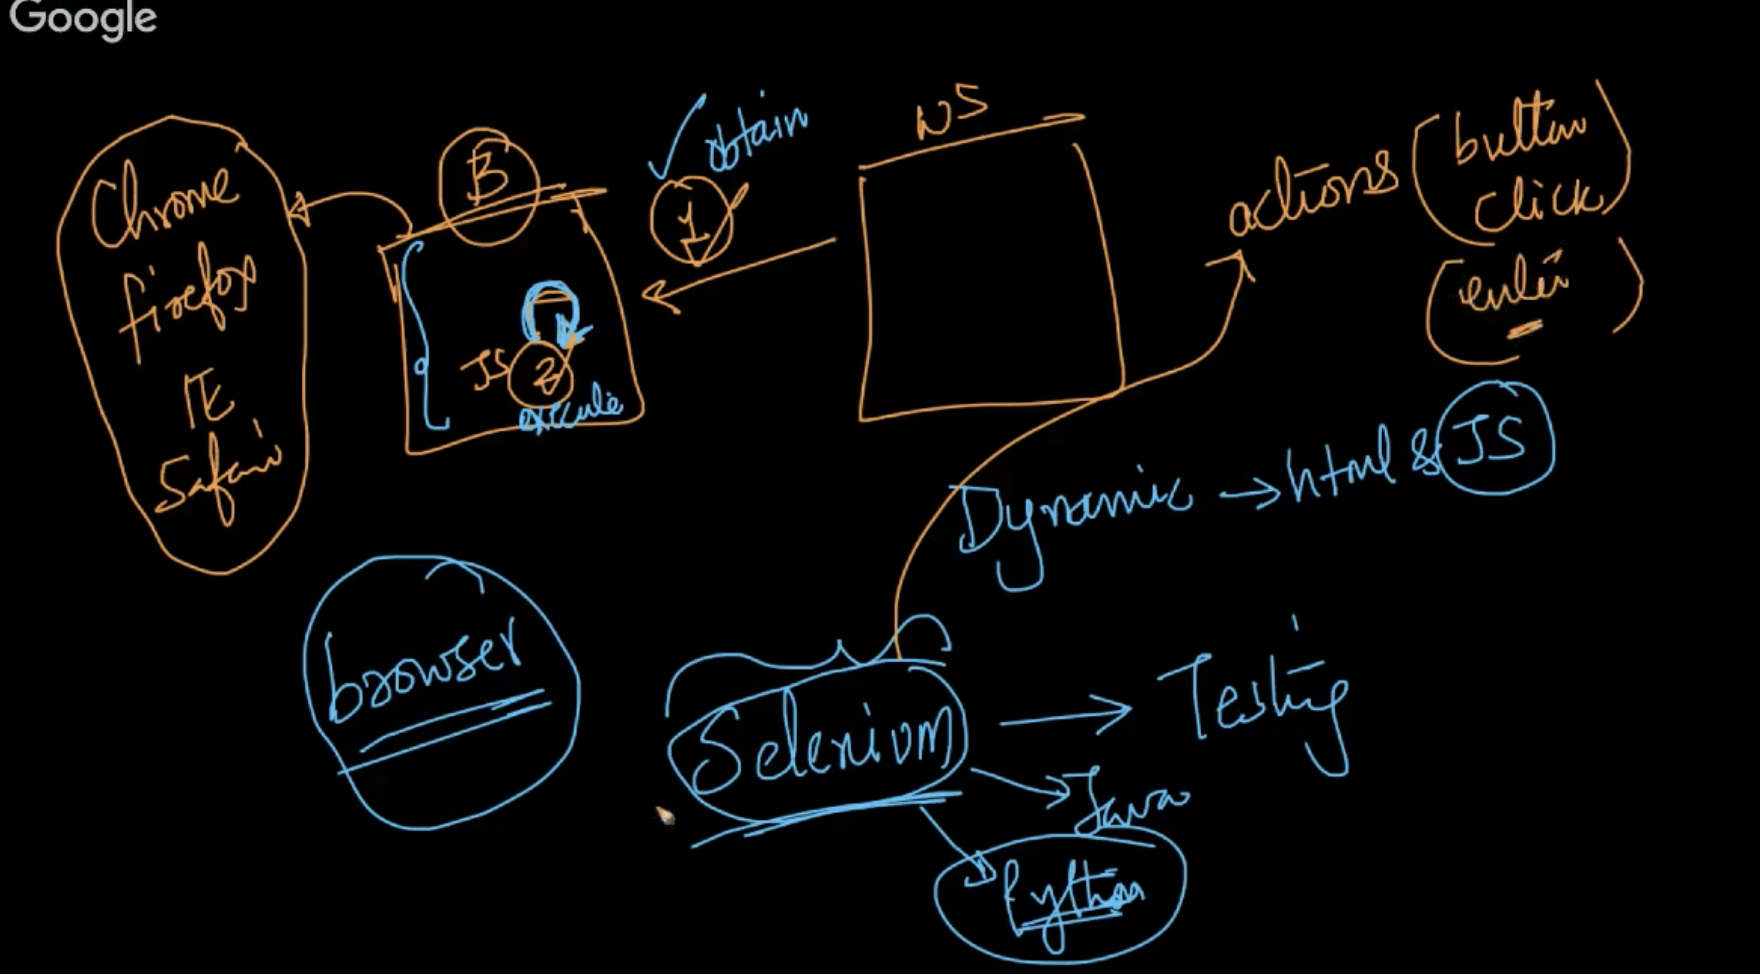 Google
Chrome
firefox
IE
Safari
B
JS 2
execute
✓ obtain
1
WS
actions (button
click)
(enter)
Dynamic → html & JS
browser
Selenium → Testing
Java
Python